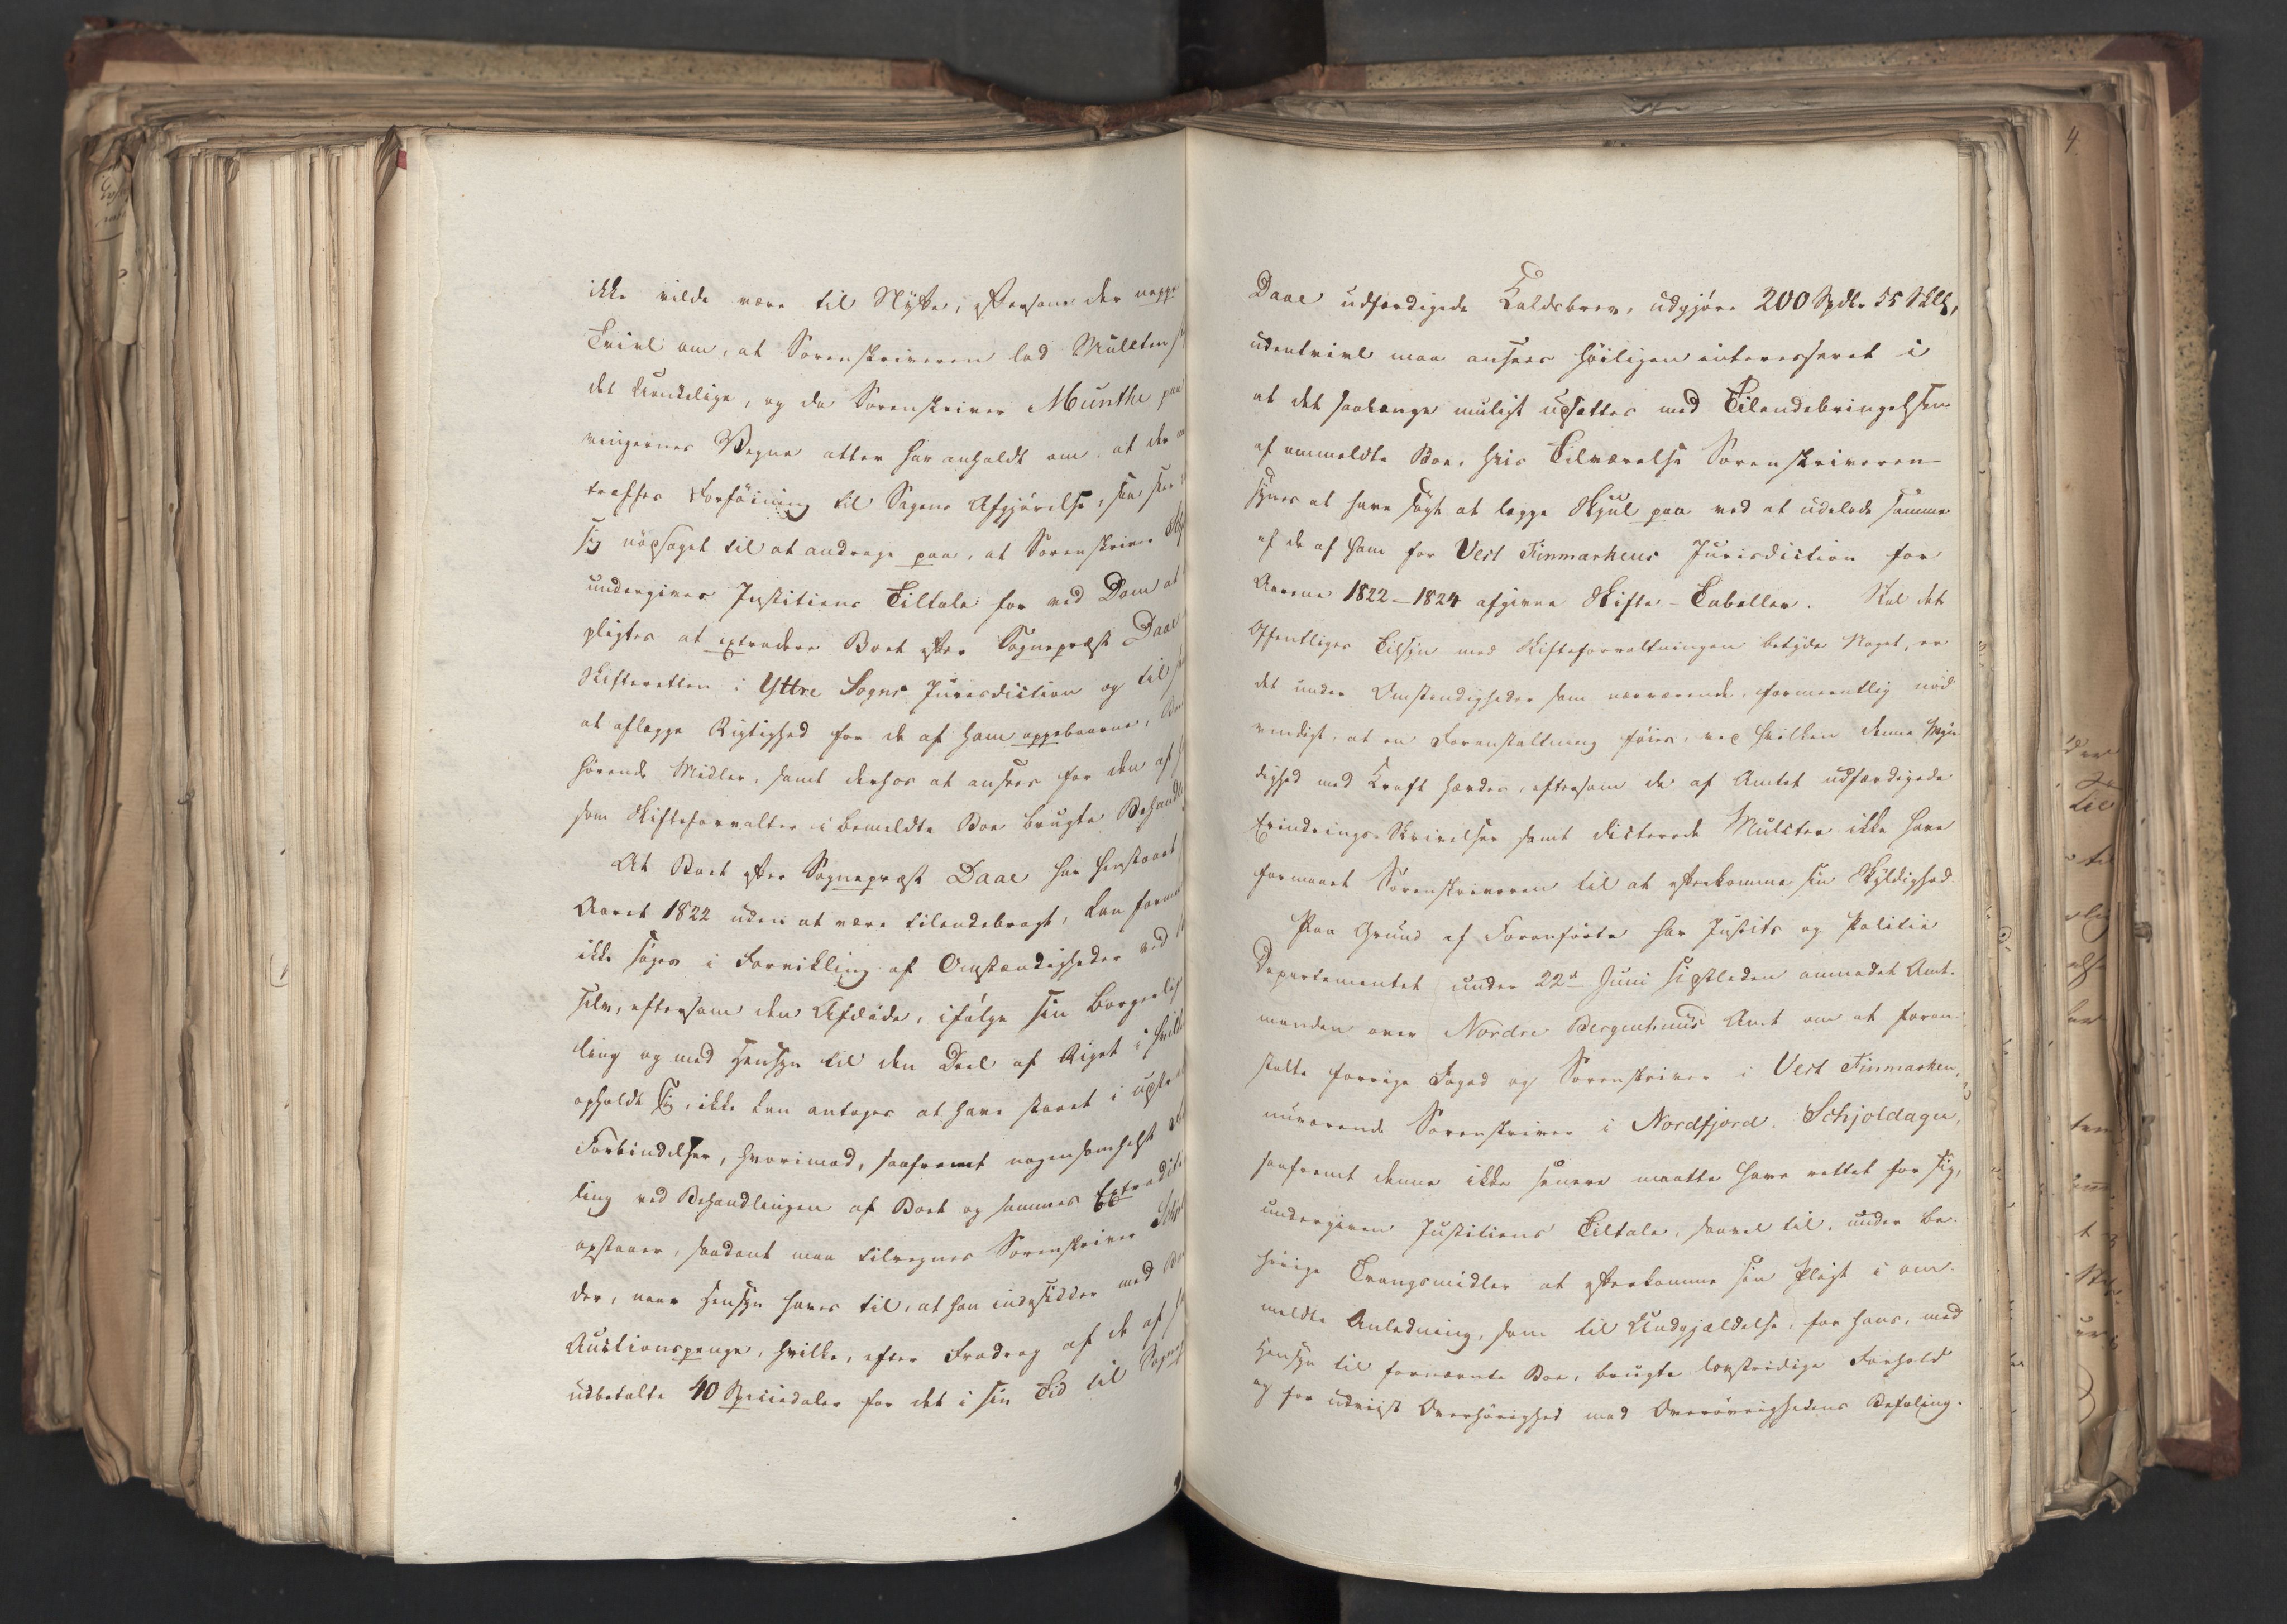 ikke vilde være til Nytte, eftersom der neppe
Tvivl om, at Sorenskriveren lod Mulkten
det Uendelige, og da Sorenskriver Munthe paa
vingernes Vegne atter har anholdt om, at der
træffes Forføining til Sagens Afgjørelse, saa seer
sig nødsaget til at andrage paa, at Sorenskriver
undergives Justitiens Tiltale for ved Dom at
pligtes at extradere Boet efter Sognepræst Daae
Skifteretten i Yttre Sogns Jurisdiction og til
at aflægge Rigtighed for de af ham oppebaarne,
hørende Midler, samt derhos at ansees for den af
som Skifteforvalter i bemeldte Boe brugte
At Boet efter Sognepræst Daae har henstaaet
Aaret 1822 uden at være tilendebragt, kan
ikke søges i Forvikling af Omstændigheder ved
selv, eftersom den Afdøde, ifølge sin
ling og med Hensyn til den Deel af Riget i
opholdt sig, ikke kan antages at have staaet i
Forbindelser, hvorimod, saafremt nogensomhelst
ling ved Behandlingen af Boet og sammes
opstaaer, saadant maa tilregnes Sorenskriver
der, naar Hensyn haves til, at han indesidder med
Auctionspenge, hvilke, efter Fradrag af de af
udbetalte 40 Speciedaler for det i sin Tid til
Daae udfærdigede Kaldsbrev, udgjøre 200 Spdlr 55 Skll,
udentvivl maa ansees høiligen interesseret i
at det saalænge muligt udsættes med Tilendebringelsen
af ommeldte Boe, hvis Tilværelse Sorenskriveren
synes at have søgt at lægge Skjul paa ved at udelade samme
af de af ham for Vest Finmarkens Jurisdiction for
Aarene 1822–1824 afgivne Skifte-Tabeller. Skal det
Offentliges Tilsyn med Skifteforvaltningen betyde Noget, er
det under Omstændigheder som nærværende, formeentlig nød
vendigt, at en Foranstaltning føies, ved hvilken denne Myn-
dighed med Kraft hævdes, eftersom de af Amtet udfærdigede
Erindrings-Skrivelser samt dicterede Mulcter ikke have
formaaet Sorenskriveren til at efterkomme sin Skyldighed.
Paa Grund af Foranførte har Justits og Politie
Departementet under 22de Juni sidstleden anmodet Amt-
manden over Nordre Bergenhuus Amt om at foran-
stalte forrige Foged og Sorenskriver i Vest Finmarken,
nuværende Sorenskriver i Nordfjord, Schjoldager,
saafremt denne ikke senere maatte have rettet for sig,
undergiven Justitiens Tiltale, saavel til, under be-
hørige Tvangsmidler at efterkomme sin Pligt i om-
meldte Anledning, som til Undgjældelse, for hans, med
Hensyn til fornævnte Boe, brugte lovstridige Forhold
og for udviist Overhørighed mod Overøvrighedens Befaling.